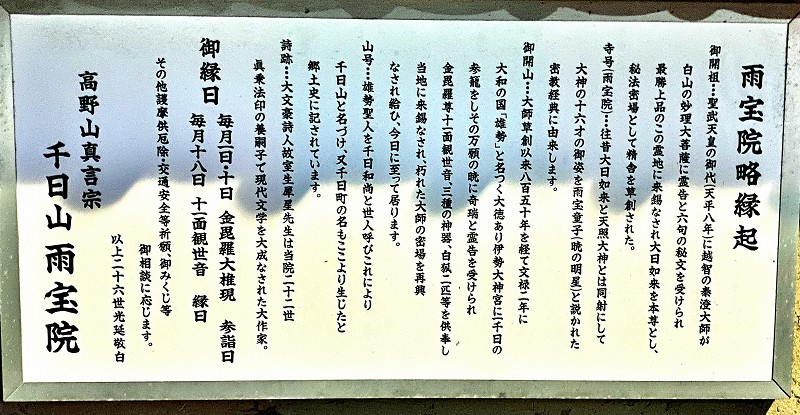 雨宝院略縁起
御開祖…聖武天皇の御代(天平八年)に越智の泰澄大師が
白山の妙理大菩薩に霊告と六句の秘文を受けられ
最勝上品のこの霊地に来錫なされ大日如来を本尊とし、
秘法密場として精舎を草創された。
寺号(雨宝院)…往昔大日如来と天照大神とは同躰にして
大神の十六才の御姿を雨宝童子(暁の明星)と説かれた
密教経典に由来します。
御開山…大師草創以来八百五十年を経て文禄二年に
大和の国「雄勢」と名づく大徳あり伊勢大神宮に一千日の
参籠をしその万願の暁に奇瑞と霊告を受けられ
金毘羅尊十一面観世音、三種の神器、白狐二匹等を供奉し
当地に来錫なされ、朽れた大師の密場を再興
なされ給ひ、今日に至って居ります。
山号…雄勢聖人を千日和尚と世人呼びこれにより
千日山と名づけ、又千日町の名もここより生じたと
郷土史に記されています。
詩跡…大文豪詩人故室生犀星先生は当院二十二世
眞乗法印の養嗣子で現代文学を大成なされた大作家。
御縁日 毎月一日・十日 金毘羅大権現 参詣日
毎月十八日 十一面観世音 縁日
その他護摩供厄除・交通安全等祈願、御みくじ等
御相談に応じます。
以上二十六世光延敬白
高野山真言宗
千日山 雨宝院